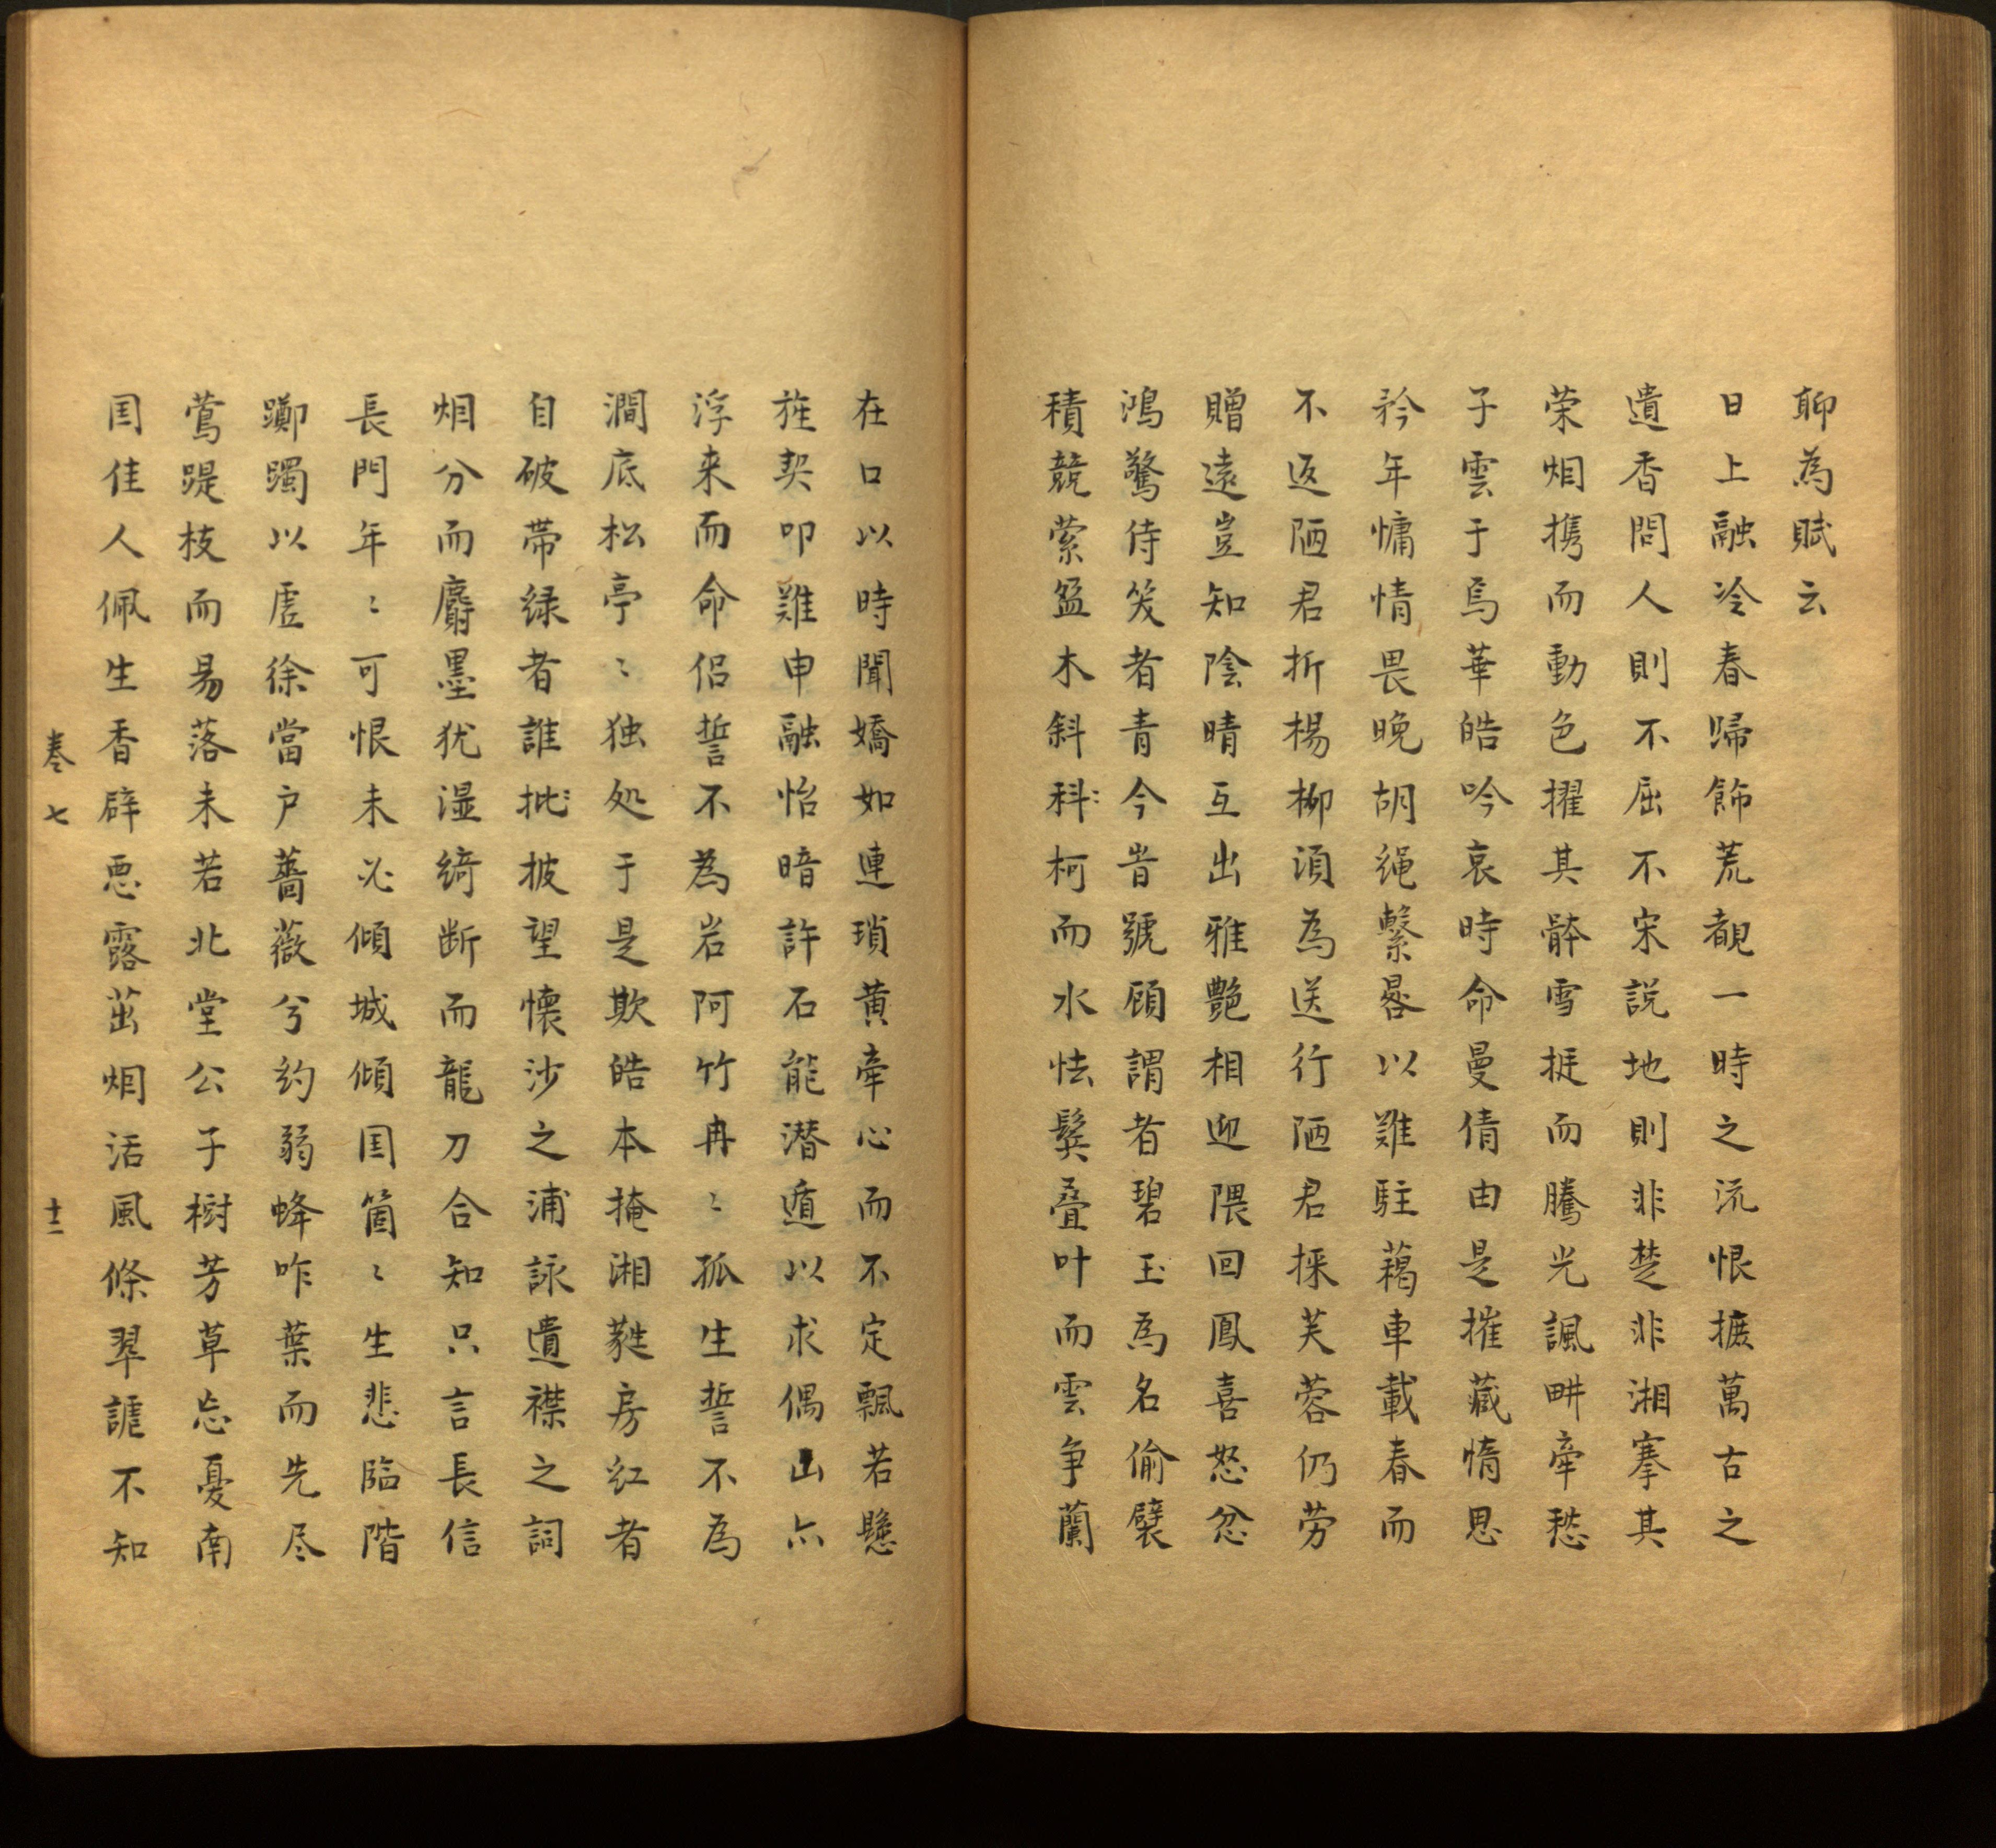 聊為賦云
日上融冷春歸飾荒覩一時之流恨摭萬古之
遺香問人則不屈不宋説地則非楚非湘搴其
荣烟携而動色擢其骵雪挻而騰光諷畊牽愁
子雲于焉華皓吟哀時命曼倩由是摧藏惰思
矜年慵情畏晚胡繩繫晷以難駐藒車載春而
不返陋君折楊柳湏為送行陋君採芙蓉仍劳
贈遠豈知陰晴互出雅艶相迎隈回鳳喜怒忿
鴻驚侍笑者青今昔號顧謂者碧玉為名偷襞
積競縈盈木斜科柯而水怯鬓叠叶而雲争蘭
在口以時聞嬌如連瑣黄牽心而不定飄若懸
旌契叩難申融怡暗許石能潜遁以求偶山亦
浮来而命侣誓不為岩阿竹冉〻孤生誓不為
澗底松亭〻独处于是欺皓本掩湘蕤房紅者
自破帶緑者誰批披望懷沙之浦詠遺襟之詞
烟分而麝墨犹湿綺断而龍刀合知只言長信
長門年〻可恨未必傾城傾国箇〻生悲臨階
躑躅以虗徐當户薔薇兮約弱蜂咋葉而先尽
鶯踶枝而易落未若北堂公子樹芳草忘憂南
国佳人佩生香辟恶露茁烟活風條翠謔不知
卷七
十二